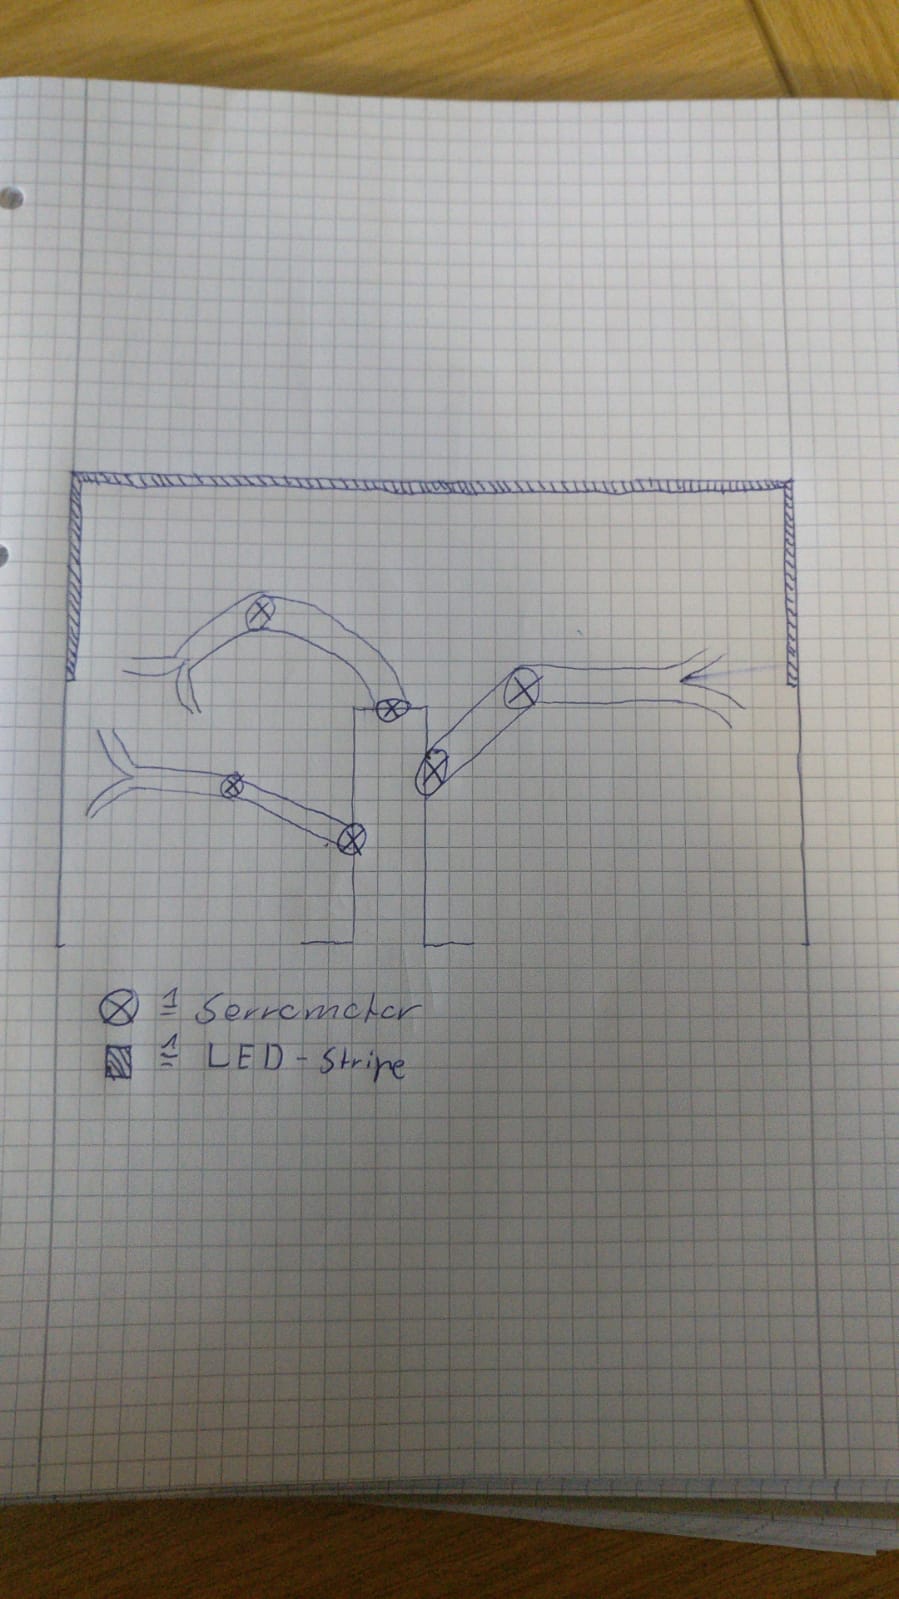 ⊗ ≙ Servomotor
▨ ≙ LED-Stripe